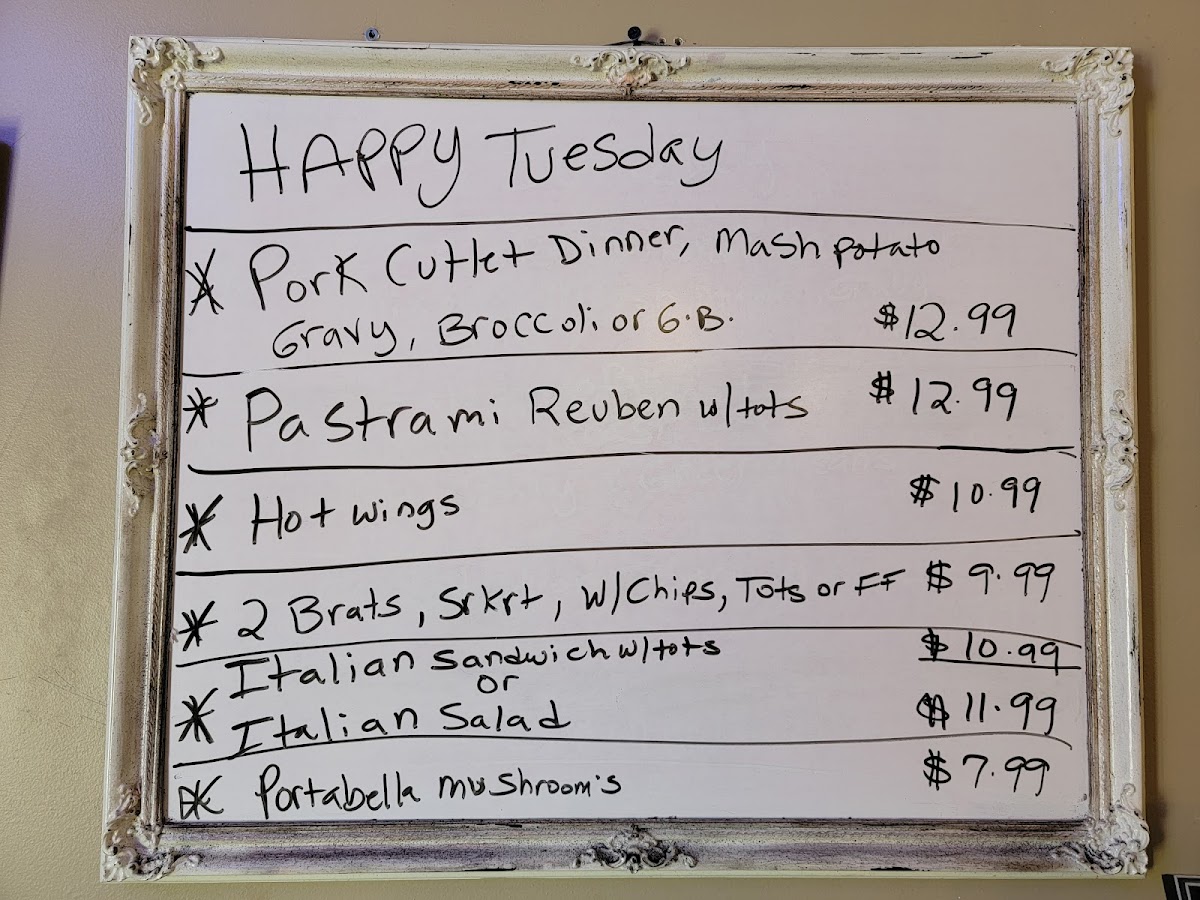 HAPPY Tuesday
* Pork Cutlet Dinner, Mash potato
Gravy, Broccoli or G.B. $12.99
* Pastrami Reuben w/tots $12.99
* Hot wings $10.99
* 2 Brats, Srkrt, w/Chips, Tots or FF $9.99
Italian Sandwich w/tots $10.99
* or
Italian Salad $11.99
* Portabella mushroom's $7.99